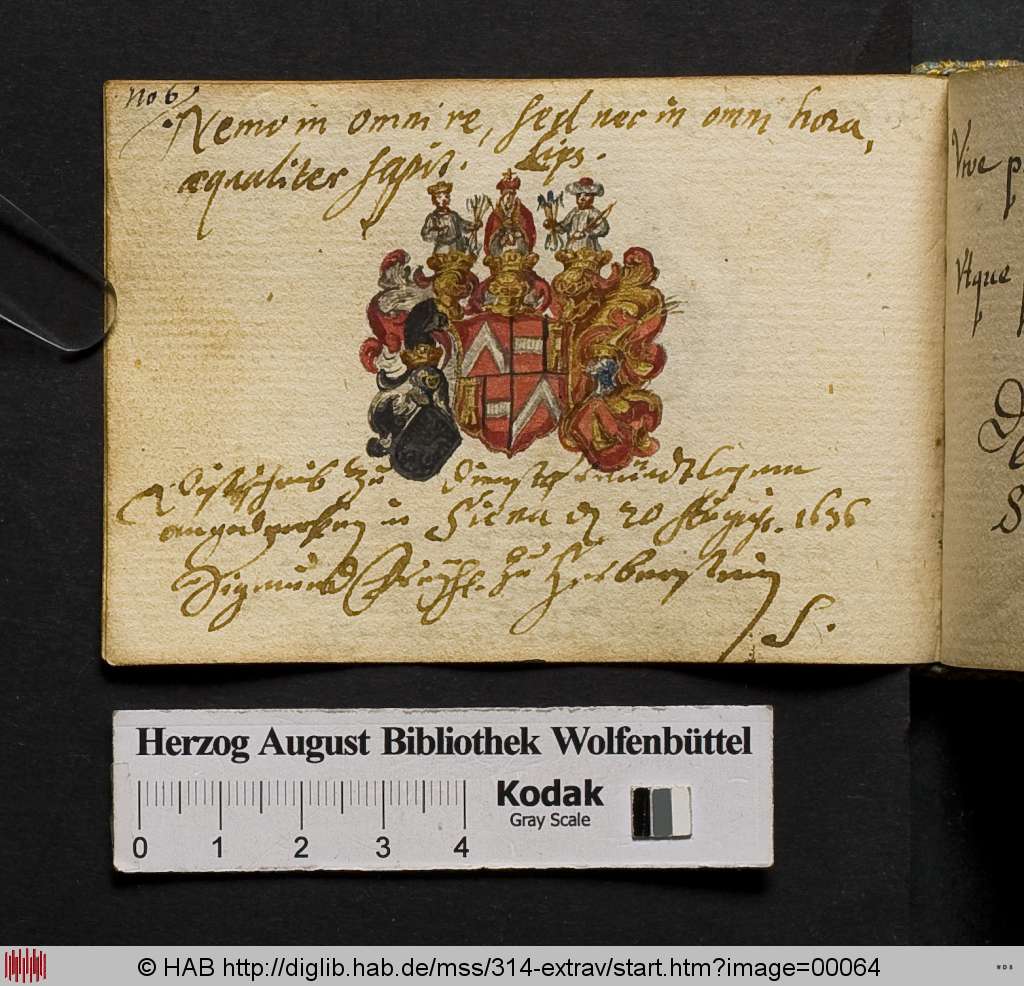 No 6
Nemo in omni re, sed nec in omni hora,
æqualiter sapit. Lips.
zu
in Siena 20 1636
Sigmundt zu Herberstein
S.
Vive
Utque
Herzog August Bibliothek Wolfenbüttel
Kodak
Gray Scale
0 1 2 3 4
© HAB http://diglib.hab.de/mss/314-extrav/start.htm?image=00064